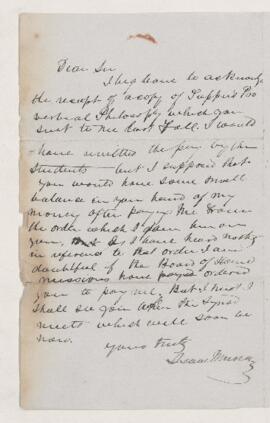 Dear Sir
I beg leave to acknowledge
the receipt of a copy of Tupper's Pro
verbial Philosophy which you
sent to me last Fall. I would
have remitted the pay by the
students but I supposed that
you would have some small
balance in your hand of my
money after paying the
the order which I
you. As I have heard nothing
in reference to that order I am
doubtful if the Board of Home
missions have ordered
you to pay me. But I trust I
shall see you when the Synod
meets which will soon be
now.
Yours truly
Isaac Murray